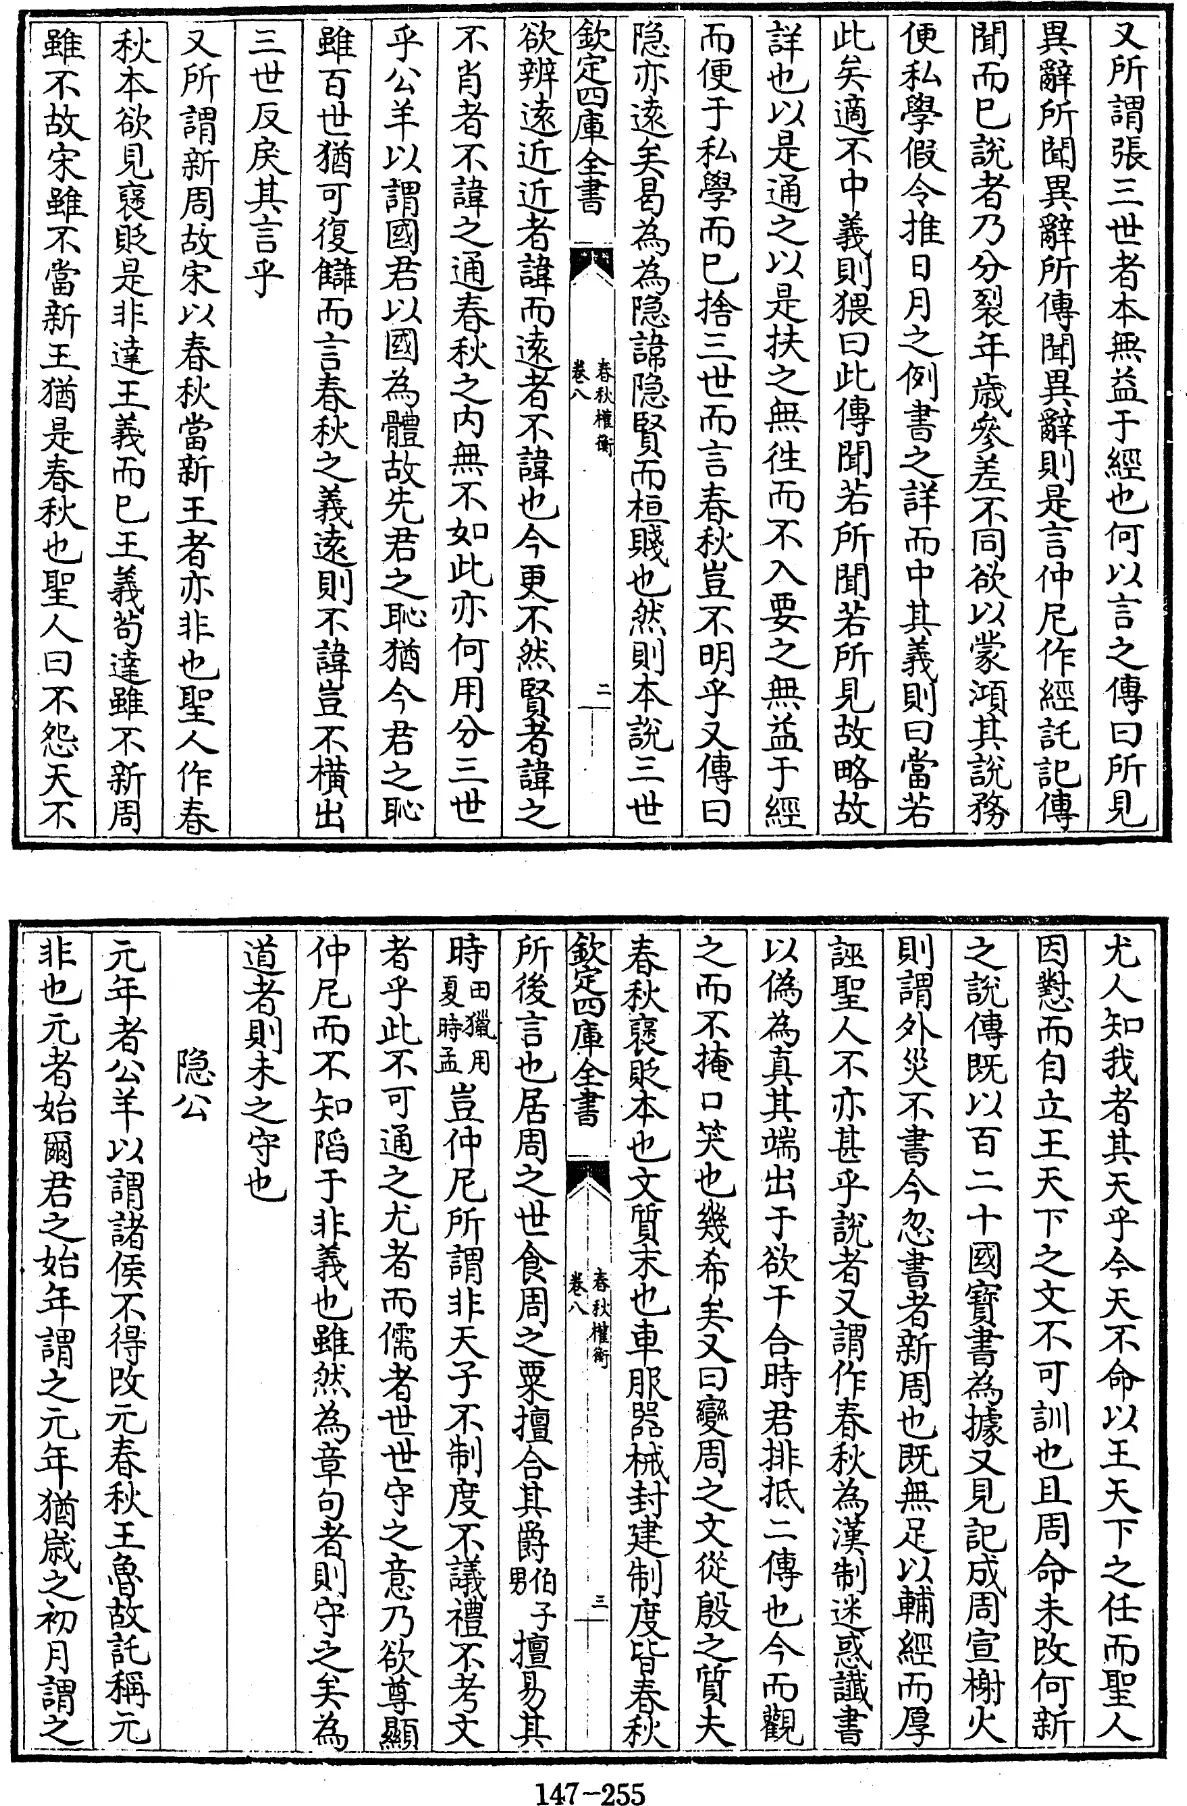 又所謂張三世者本無益于經也何以言之傳曰所見
異辭所聞異辭所傳聞異辭則是言仲尼作經託記傳
聞而已說者乃分裂年歲參差不同欲以蒙澒其說務
便私學假令推日月之例書之詳而中其義則曰當若
此矣適不中義則猥曰此傳聞若所聞若所見故略故
詳也以是通之以是扶之無徃而不入要之無益于經
而便于私學而已捨三世而言春秋豈不明乎又傳曰
隐亦逺矣曷為為隐諱隐賢而桓賤也然則本說三世
欽定四庫全書
春秋權衡
卷八
二
欲辨逺近近者諱而逺者不諱也今更不然賢者諱之
不肖者不諱之通春秋之内無不如此亦何用分三世
乎公羊以謂國君以國為體故先君之恥猶今君之恥
雖百世猶可復讎而言春秋之義逺則不諱豈不橫出
三世反戾其言乎
又所謂新周故宋以春秋當新王者亦非也聖人作春
秋本欲見襃貶是非達王義而已王義茍達雖不新周
雖不故宋雖不當新王猶是春秋也聖人曰不怨天不
尤人知我者其天乎今天不命以王天下之任而聖人
因懟而自立王天下之文不可訓也且周命未改何新
之說傳既以百二十國寳書為據又見記成周宣榭火
則謂外災不書今忽書者新周也既無足以輔經而厚
誣聖人不亦甚乎說者又謂作春秋為漢制迷惑讖書
以偽為真其端出于欲干合時君排抵二傳也今而觀
之而不掩口笑也幾希矣又曰變周之文從殷之質夫
春秋襃貶本也文質末也車服器械封建制度皆春秋
欽定四庫全書
春秋權衡
卷八
三
所後言也居周之世食周之粟擅合其爵伯子男擅易其
時田獵用夏時孟豈仲尼所謂非天子不制度不議禮不考文
者乎此不可通之尤者而儒者世世守之意乃欲尊顯
仲尼而不知陷于非義也雖然為章句者則守之矣為
道者則未之守也
隐公
元年者公羊以謂諸侯不得改元春秋王魯故託稱元
非也元者始爾君之始年謂之元年猶歲之初月謂之
147-255